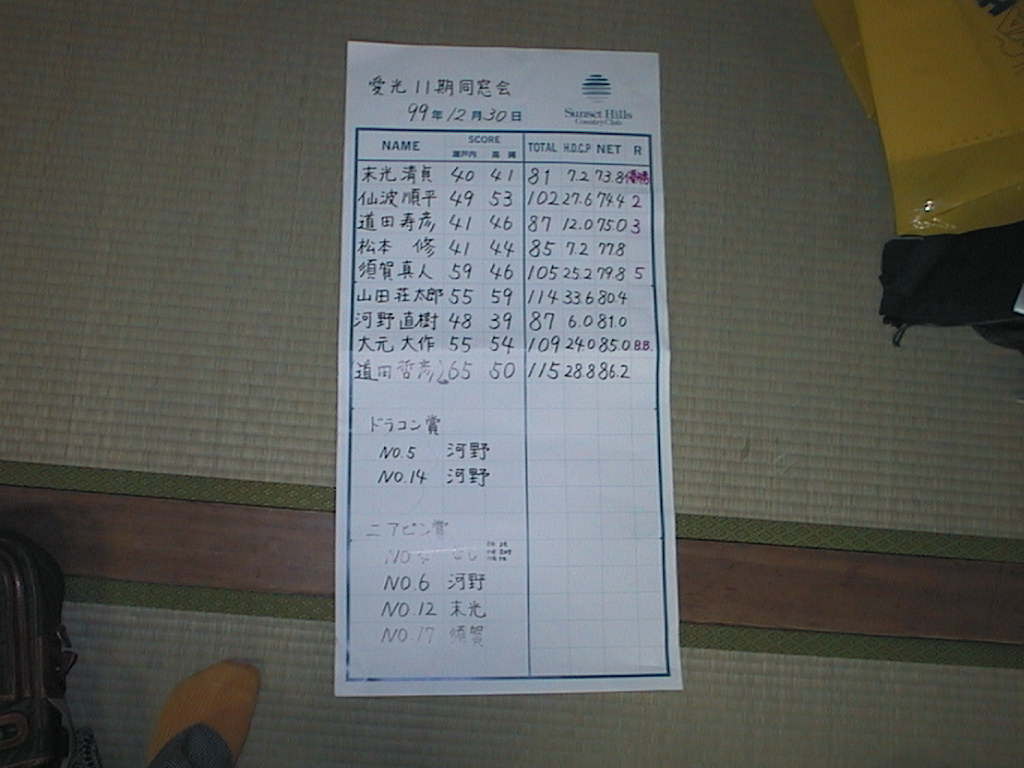 愛光 11期同窓会
Sunset Hills
Country Club
99年12月30日
NAME SCORE TOTAL H.D.C.P NET R
瀬戸内 高縄
末光 清貞 40 41 81 7.2 73.8 優勝
仙波 順平 49 53 102 27.6 74.4 2
道田 寿彦 41 46 87 12.0 75.0 3
松本 修 41 44 85 7.2 77.8
須賀 真人 59 46 105 25.2 79.8 5
山田 荘太郎 55 59 114 33.6 80.4
河野 直樹 48 39 87 6.0 81.0
大元 大作 55 54 109 24.0 85.0 B.B.
(道田 哲彦) 65 50 115 28.8 86.2
ドラコン賞
NO.5 河野
NO.14 河野
ニアピン賞
NO.6 河野
NO.12 末光
NO.17 須賀